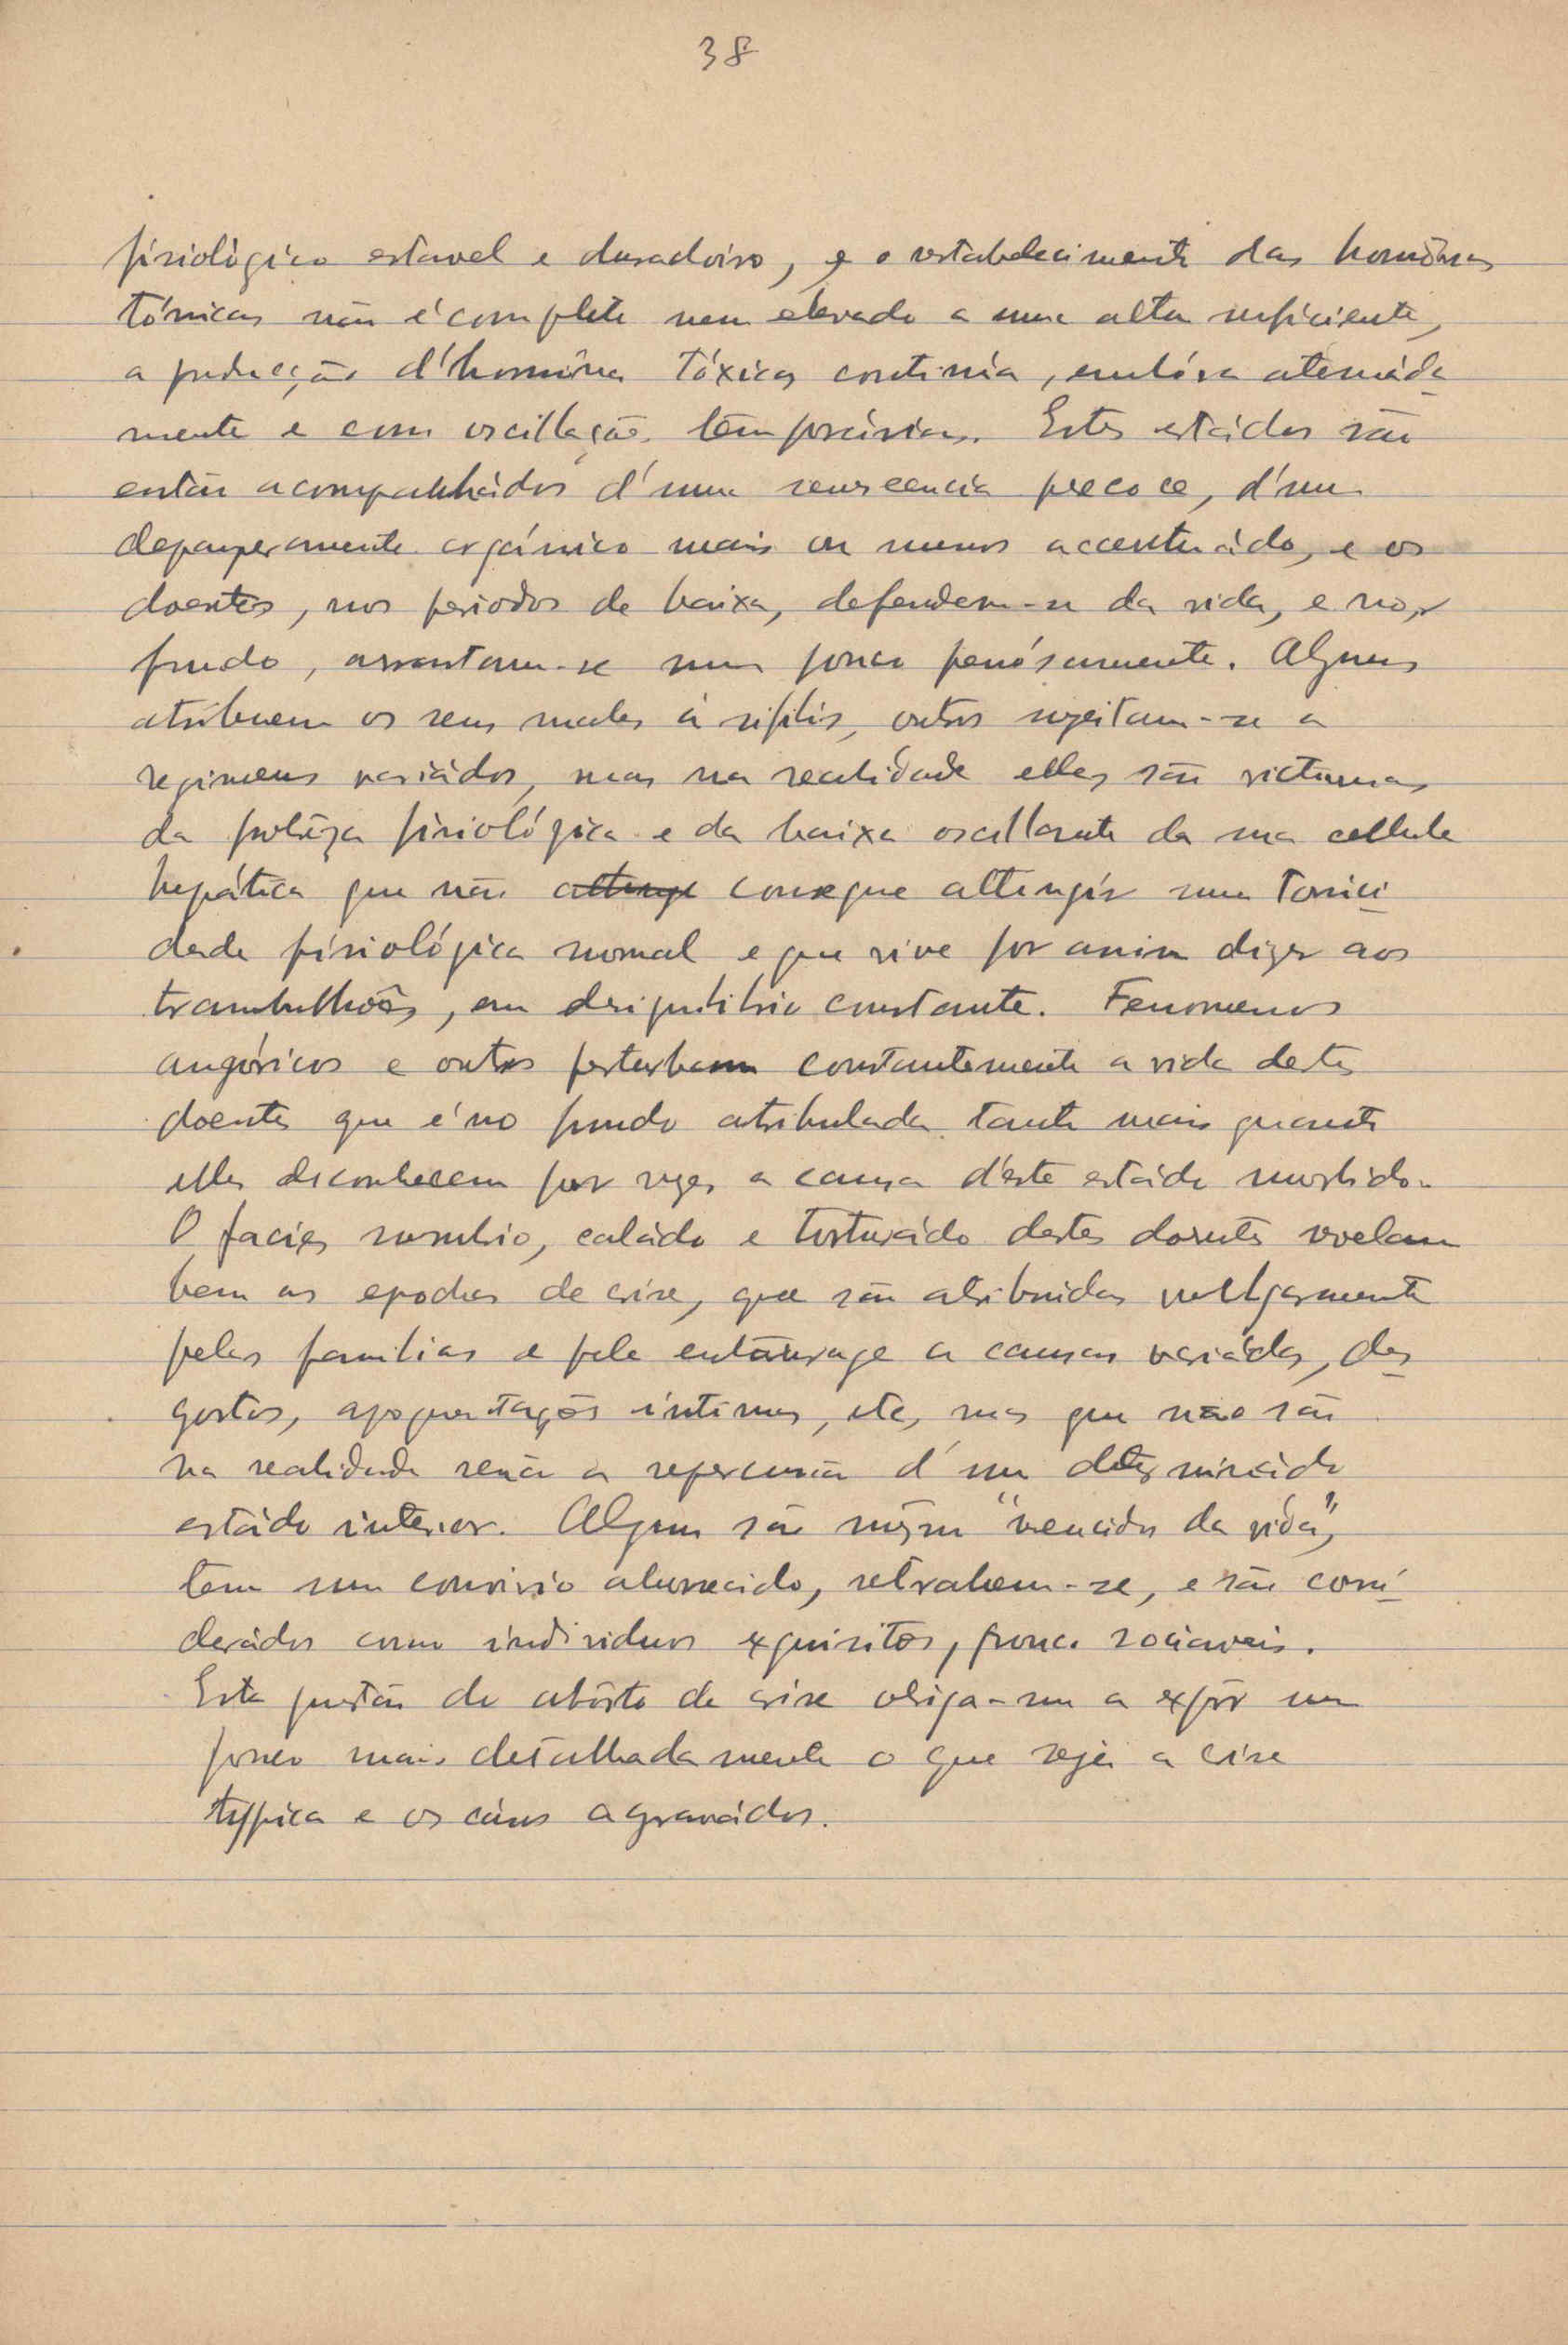 38
fisiológico estavel e duradoiro, e o restabelecimento das hormônas
tónicas não é completo nem elevado a uma alta suficiente,
a producção d'hormônas tóxicas continúa, embóra atenuáda
mente e com oscillações temporárias. Estes estádos são
então acompanhádos d'uma senescencia precoce, d'um
depauperamento orgánico mais ou menos accentuádo, e os
doentes, nos periodos de baixa, defendem-se da vida, e no
fundo, arrastam-se um pouco penósamente. Alguns
atribuem os seus males á sifilis, outros sugeitam-se a
regimens variádos, mas na realidade elles são victimas
da pobrêza fisiológica e da baixa oscillante da sua cellula
hepática que não attinge consegue attingir uma tonici
dade fisiológica normal e que vive por assim dizer aos
trambulhões, em desiquilibrio constante. Fenomenos
angóricos e outros perturbam constantemente a vida destes
doentes que é no fundo atribulada tanto mais quanto
elles desconhecem por vezes a causa d'este estádo morbido.
O facies sombrio, caládo e torturádo destes doentes revelam
bem as epochas de crise, que são atribuidas vulgarmente
pelas familias e pela entourage a causas variádas, des
gostos, apoquentações intimas, etc, mas que não são
na realidade senão a repercussão d'um determinádo
estádo interior. Alguns são mesmo "vencidos da vida",
tem um convivio aborrecido, retrahem-se, e são consi
derádos como individuos exquisitos, pouco sociaveis.
Esta questão do abôrto da crise obriga-me a expôr um
pouco mais detalhadamente o que seja a crise
typica e os cásos agravádos.